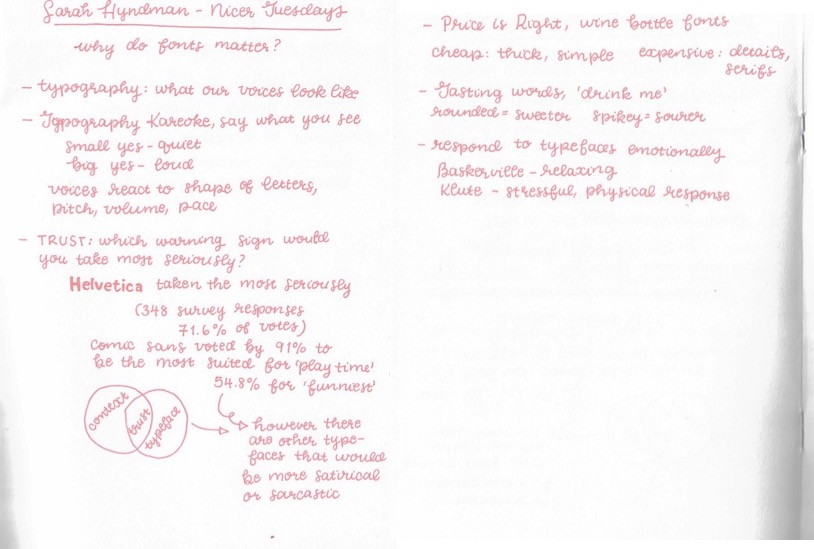 Sarah Hyndman - Nicer Tuesdays
why do fonts matter?
- typography: what our voices look like
- Typography Kareoke, say what you see
small yes - quiet
big yes - loud
voices react to shape of letters,
pitch, volume, pace
- TRUST: which warning sign would
you take most seriously?
Helvetica taken the most seriously
(348 survey responses
71.6% of votes)
comic sans voted by 91% to
be the most suited for 'play time'
54.8% for 'funniest'
context
trust
typeface
however there
are other type-
faces that would
be more satirical
or sarcastic
- Price is Right, wine bottle fonts
cheap: thick, simple expensive: details,
serifs
- Tasting words, 'drink me'
rounded = sweeter spikey = sourer
- respond to typefaces emotionally
Baskerville - relaxing
Klute - stressful, physical response